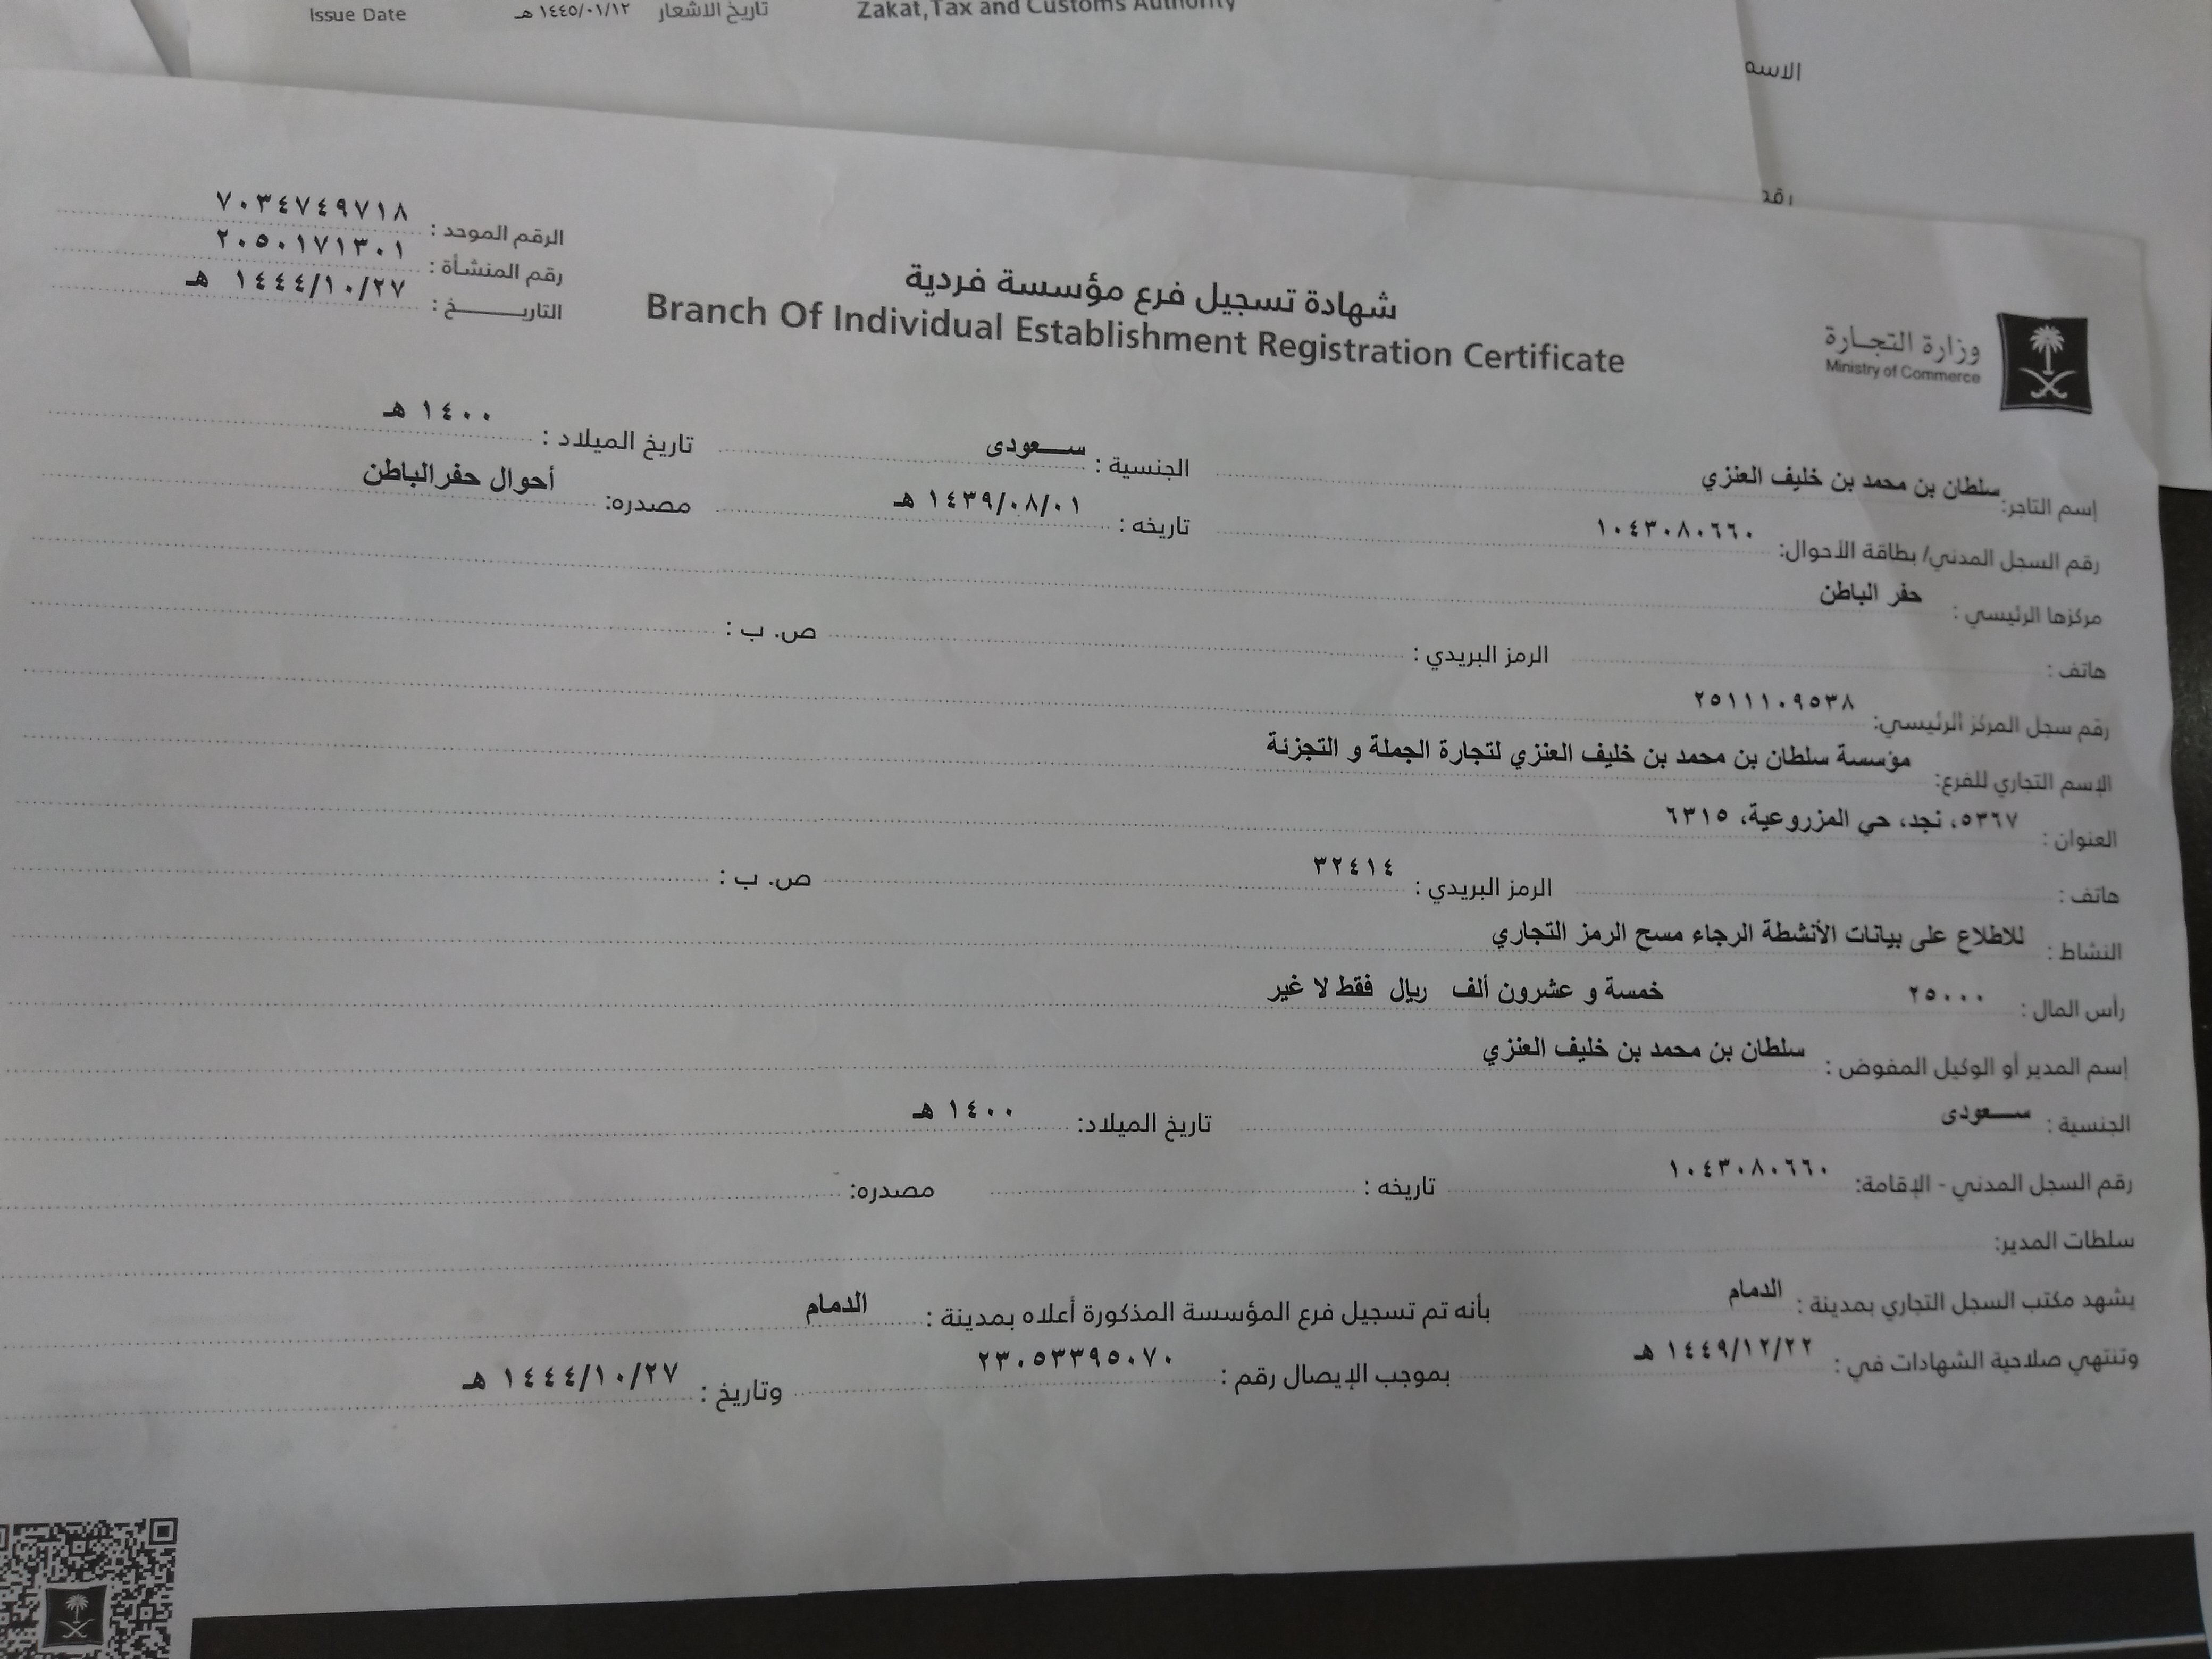 Issue Date ١٤٤٥/٠١/١٢ هـ تاريخ الاشعار Zakat, Tax and Customs Authority
الاسم
رقم
الرقم الموحد : ٧٠٣٤٧٤٩٧١٨
رقم المنشأة : ٢٠٥٠١٧١٣٠١
التاريـــــخ : ١٤٤٤/١٠/٢٧ هـ
شهادة تسجيل فرع مؤسسة فردية
Branch Of Individual Establishment Registration Certificate
وزارة التجـارة
Ministry of Commerce
إسم التاجر: سلطان بن محمد بن خليف العنزي الجنسية : ســعودى تاريخ الميلاد : ١٤٠٠ هـ
رقم السجل المدني/ بطاقة الأحوال: ١٠٤٣٠٨٠٦٦٠ تاريخه : ١٤٣٩/٠٨/٠١ هـ مصدره: أحوال حفر الباطن
مركزها الرئيسي : حفر الباطن
هاتف : الرمز البريدي : ص. ب :
رقم سجل المركز الرئيسي: ٢٥١١١٠٩٥٣٨
الإسم التجاري للفرع: مؤسسة سلطان بن محمد بن خليف العنزي لتجارة الجملة و التجزئة
العنوان : ٥٣٦٧، نجد، حي المزروعية، ٦٣١٥
هاتف : الرمز البريدي : ٣٢٤١٤ ص. ب :
النشاط : للاطلاع على بيانات الأنشطة الرجاء مسح الرمز التجاري
رأس المال : ٢٥٠٠٠ خمسة و عشرون ألف ريال فقط لا غير
إسم المدير أو الوكيل المفوض : سلطان بن محمد بن خليف العنزي
الجنسية : ســعودى تاريخ الميلاد: ١٤٠٠ هـ
رقم السجل المدني - الإقامة: ١٠٤٣٠٨٠٦٦٠ تاريخه : مصدره:
سلطات المدير:
يشهد مكتب السجل التجاري بمدينة : الدمام بأنه تم تسجيل فرع المؤسسة المذكورة أعلاه بمدينة : الدمام
وتنتهي صلاحية الشهادات في : ١٤٤٩/١٢/٢٢ هـ بموجب الإيصال رقم : ٢٣٠٥٣٣٩٥٠٧٠ وتاريخ : ١٤٤٤/١٠/٢٧ هـ